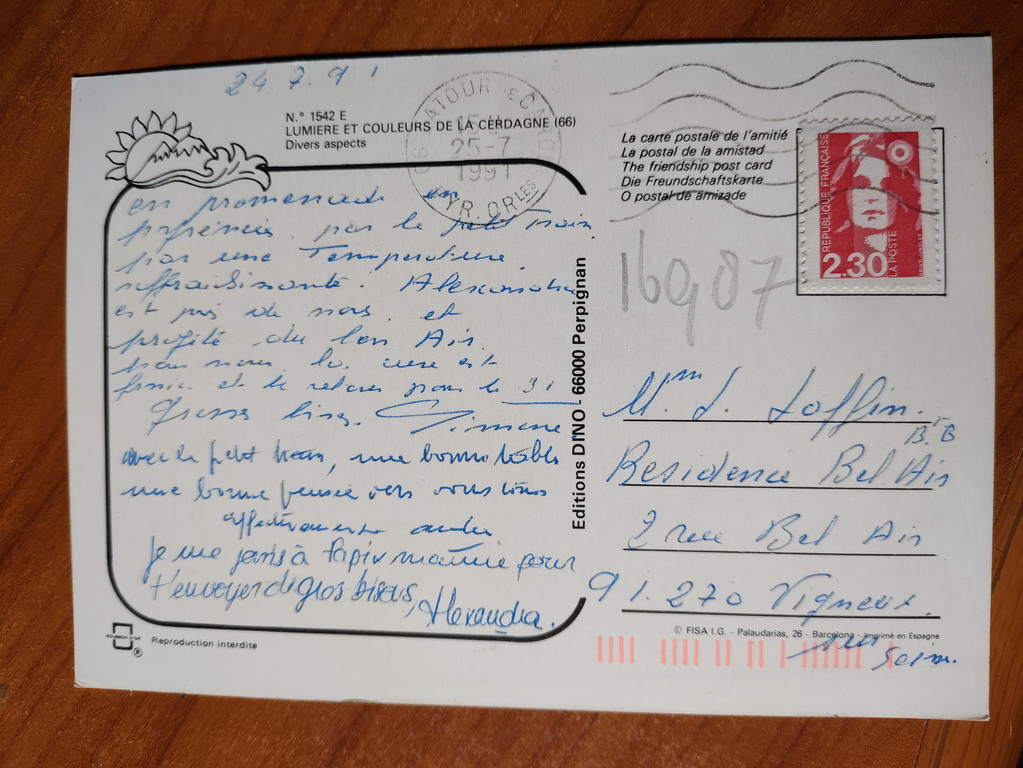 24.7.91
N.º 1542 E
LUMIERE ET COULEURS DE LA CERDAGNE (66)
Divers aspects
LATOUR DE CAROL
25-7
1991
PYR. ORLES
La carte postale de l'amitié
La postal de la amistad
The friendship post card
Die Freundschaftskarte
O postal de amizade
REPUBLIQUE FRANÇAISE
2.30
LA POSTE
160,07
en promenade en
pyrénées par le petit train
par une Température
raffraîssisante. Alexandra
est près de nous et
profite du bon Air
pour nous la cure est
finie et le retour pour le 31
Grosses bises. Simone
avec le petit train, une bonne table
une bonne pensée vers vous tous
affectueusement andré
Je me joins à Papix mamie pour
t'envoyer de gros bisous, Alexandra.
Editions DINO - 66000 Perpignan
Mme J. Loffin.
B.B
Residence Bel Air
2 rue Bel Air
91.270 Vigneux.
sur Seine.
© FISA I.G. - Palaudarias, 26 - Barcelona - Imprimé en Espagne
ESCUDO DE ORO
®
Reproduction interdite